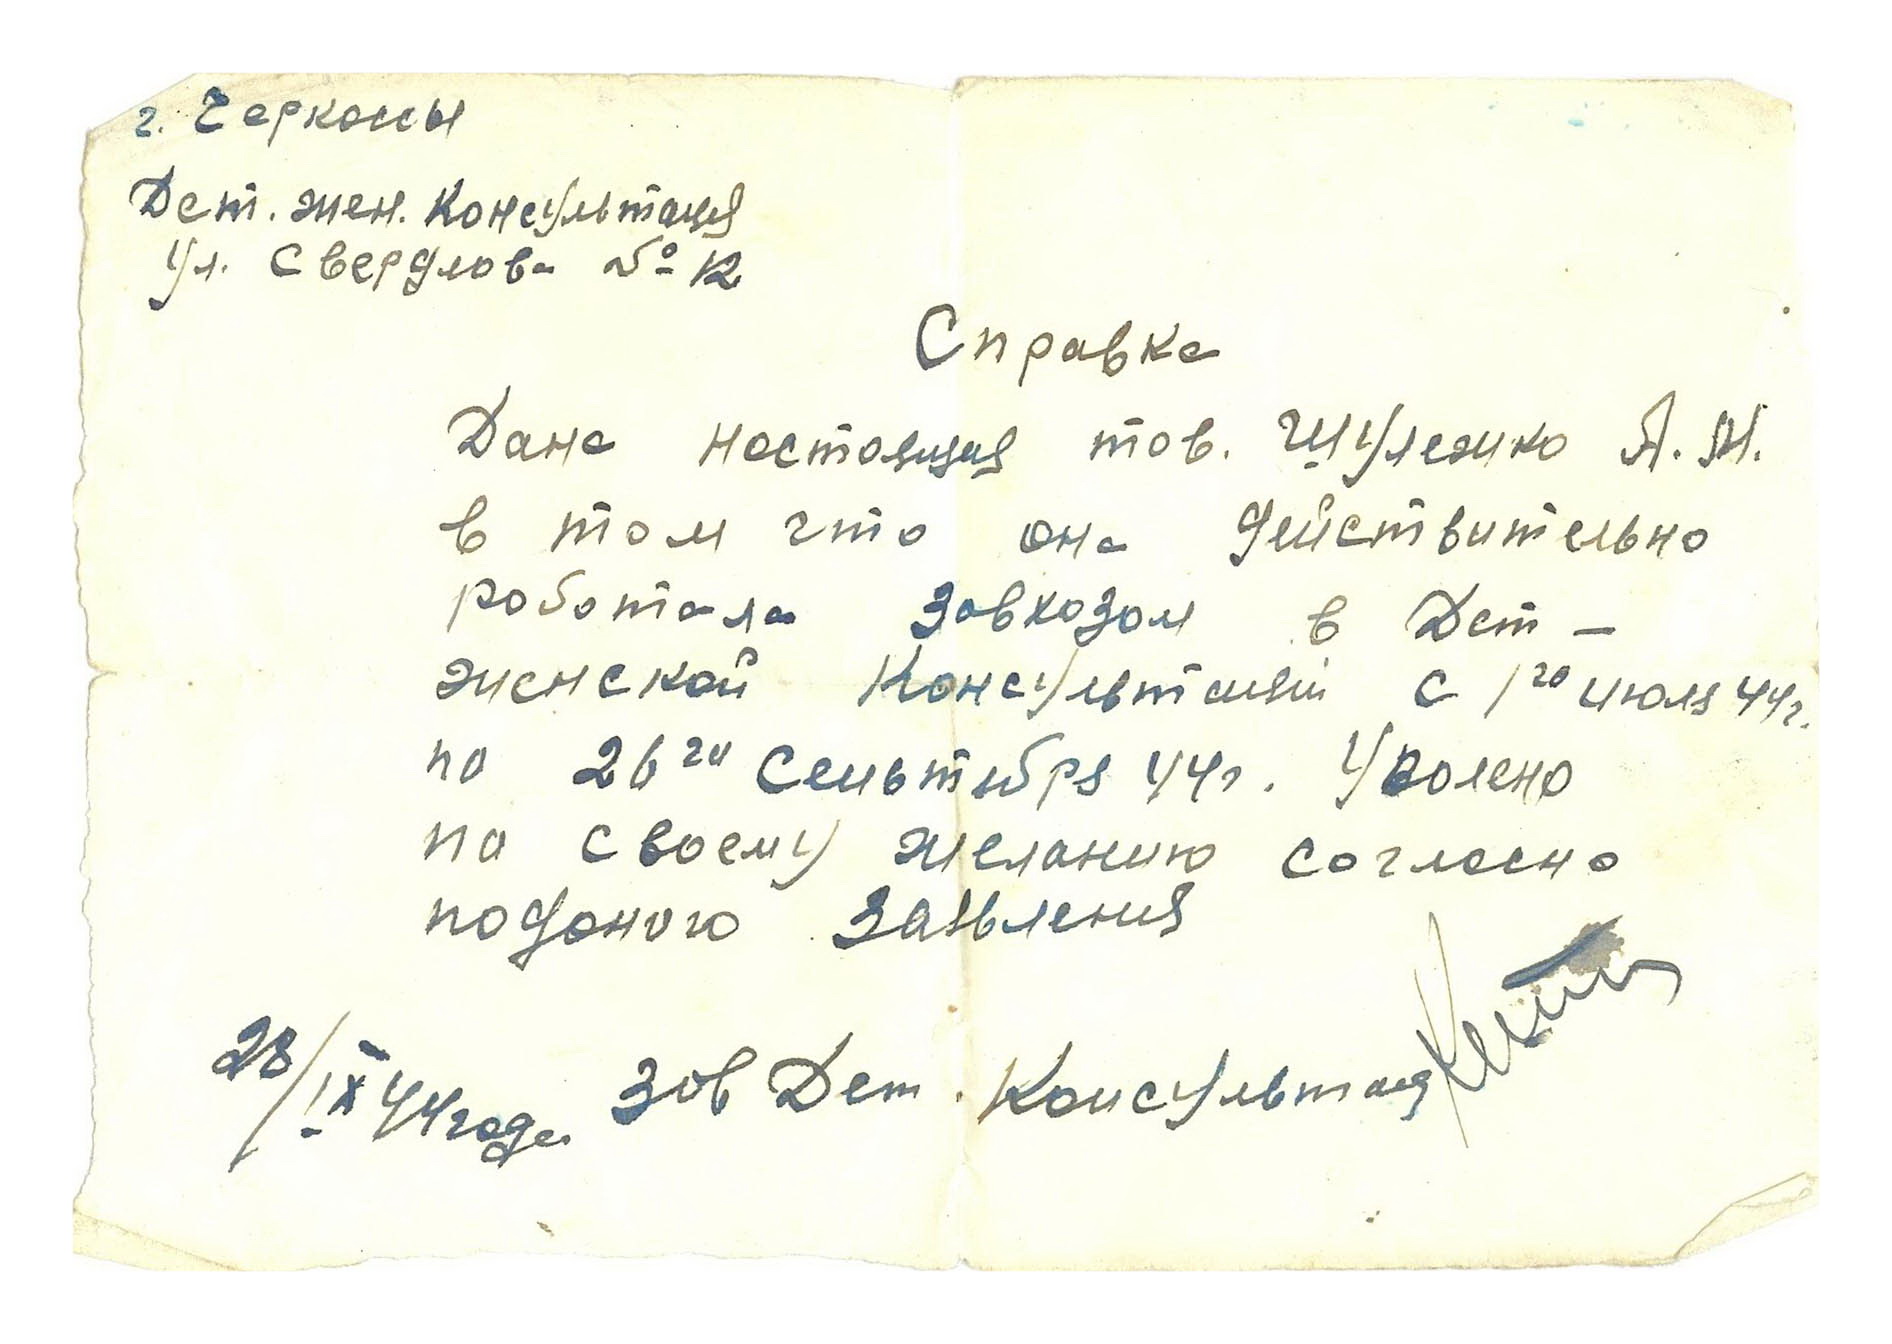 г. Черкассы
Дет. жен. Консультация
Ул. Свердлова № 12
Справка
Дана настоящая тов. Шулежко А. М.
в том что она действительно
работала Завхозом в Дет –
женской Консультации с 1го июля 44г.
по 26го Сентября 44г. Уволено
по своему желанию согласно
поданого Заявления
28/IX 44 года. Зав Дет. Консультац